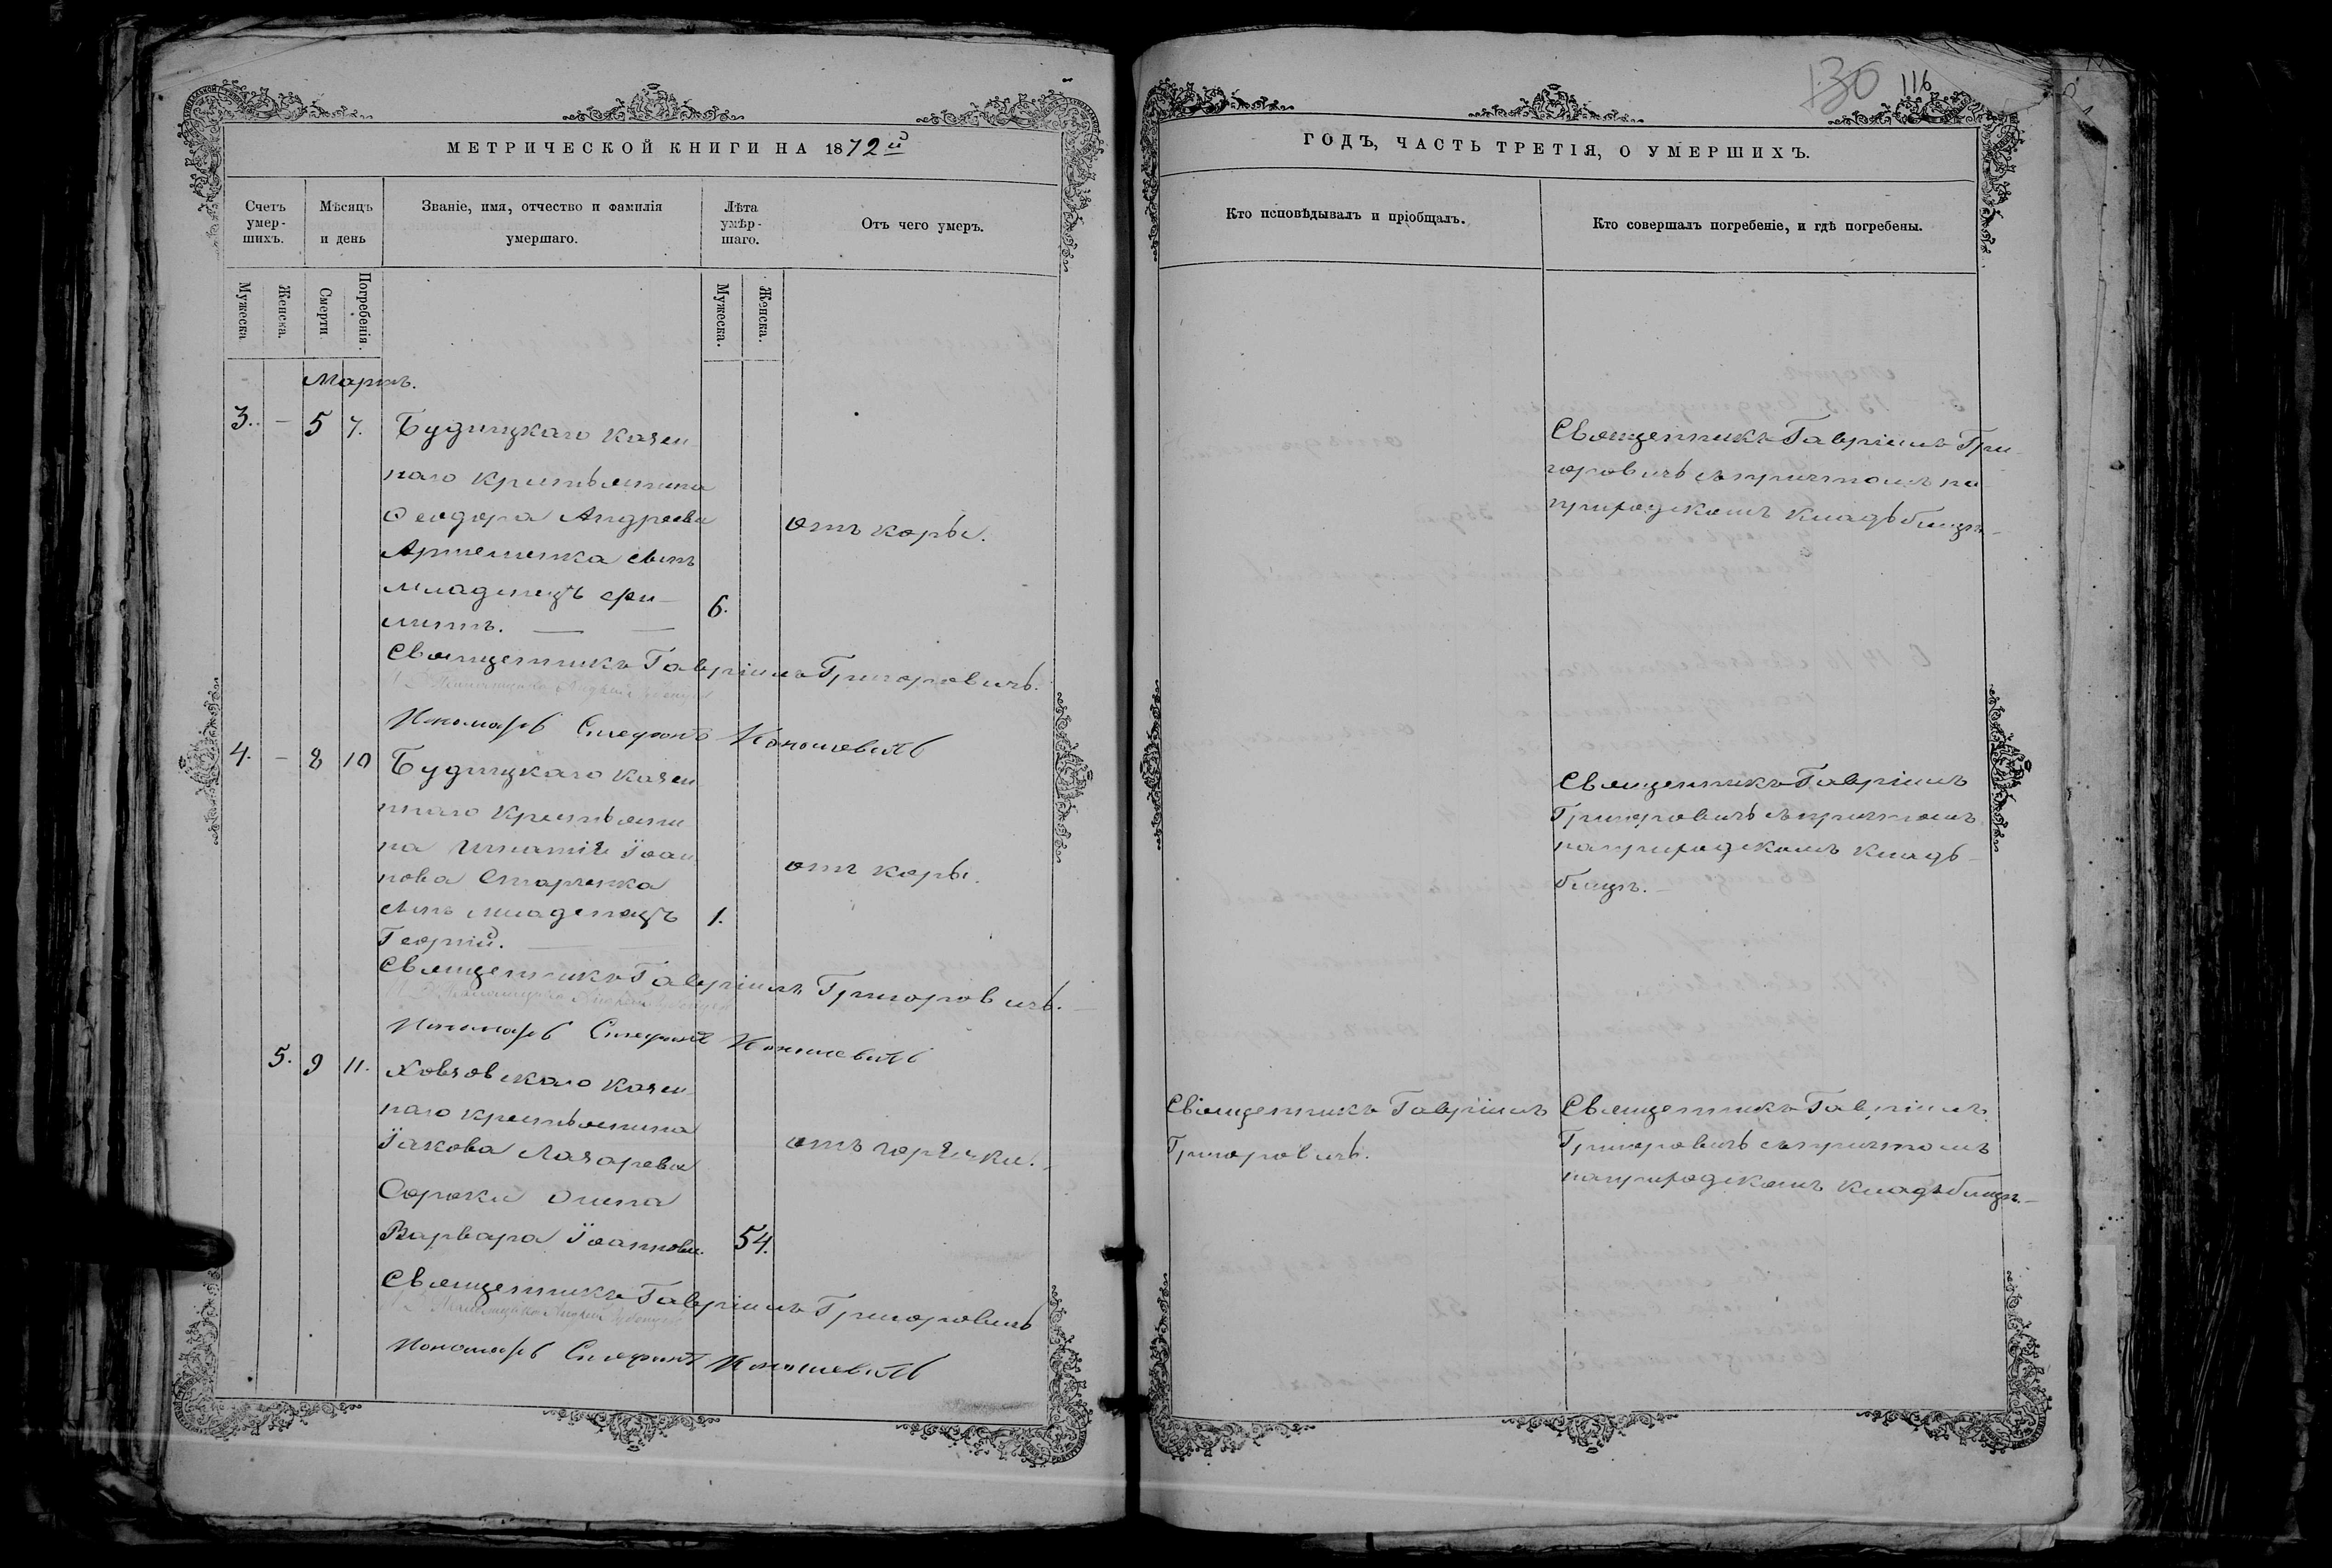 МЕТРИЧЕСКОЙ КНИГИ НА 1872й
Счетъ умер-шихъ.
Мѣсяцъ и день
Званіе, имя, отчество и фамилія умершаго.
Лѣта умѣр-шаго.
Отъ чего умеръ.
Мужеска
Женска.
Смерти
Погребенія.
Мужеска.
Женска.
Мартъ.
3. – 5 7. Будищкаго казен
наго крестьянина
Ѳеодора Андреева
Артеменка сынъ отъ коры.
младенецъ Фи– 6.
липпъ.
Священникъ Гавріилъ Григоровичъ.
Пономарь Стефанъ Коношевичъ
4. – 8 10 Будищкаго казен
ннаго крестьяни
на Игнатія Іоан
нова Старченка отъ коры.
сынъ младенецъ 1.
Георгій.
Священникъ Гавріилъ Григоровичъ.
Пономарь Стефанъ Коношевичъ
5. 9 11. казен
наго крестьянина
Іакова Лазарева отъ горячки.
Сороки жена
Варвара Іоаннова. 54.
Священникъ Гавріилъ Григоровичъ
Пономарь Стефанъ Коношевичъ
130 116
ГОДЪ, ЧАСТЬ ТРЕТІЯ, О УМЕРШИХЪ.
Кто исповѣдывалъ и пріобщалъ.
Кто совершалъ погребеніе, и гдѣ погребены.
Священникъ Гавріилъ Гри
горовичъ съ причтомъ на
приходскомъ кладбищѣ.
Священникъ Гавріилъ
Григоровичъ съ причтомъ
на приходскомъ кладъ
бищѣ.
Священникъ Гавріилъ
Григоровичъ.
Священникъ Гавріилъ
Григоровичъ съ причтомъ
на приходскомъ кладъбищѣ